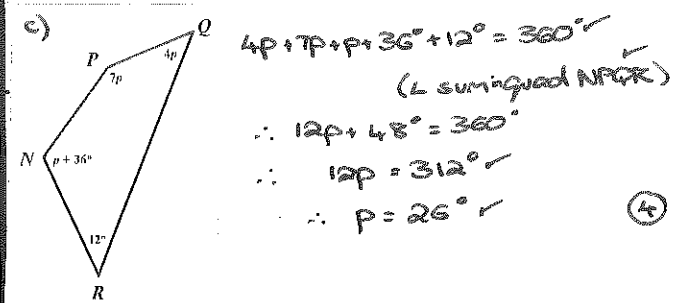 c)
Q
P
4p
7p
N
p + 36°
12°
R
4p+7p+p+36°+12° = 360° ✓
(∠ sum in quad NPQR) ✓
∴ 12p + 48° = 360°
∴ 12p = 312° ✓
∴ p = 26° ✓
4